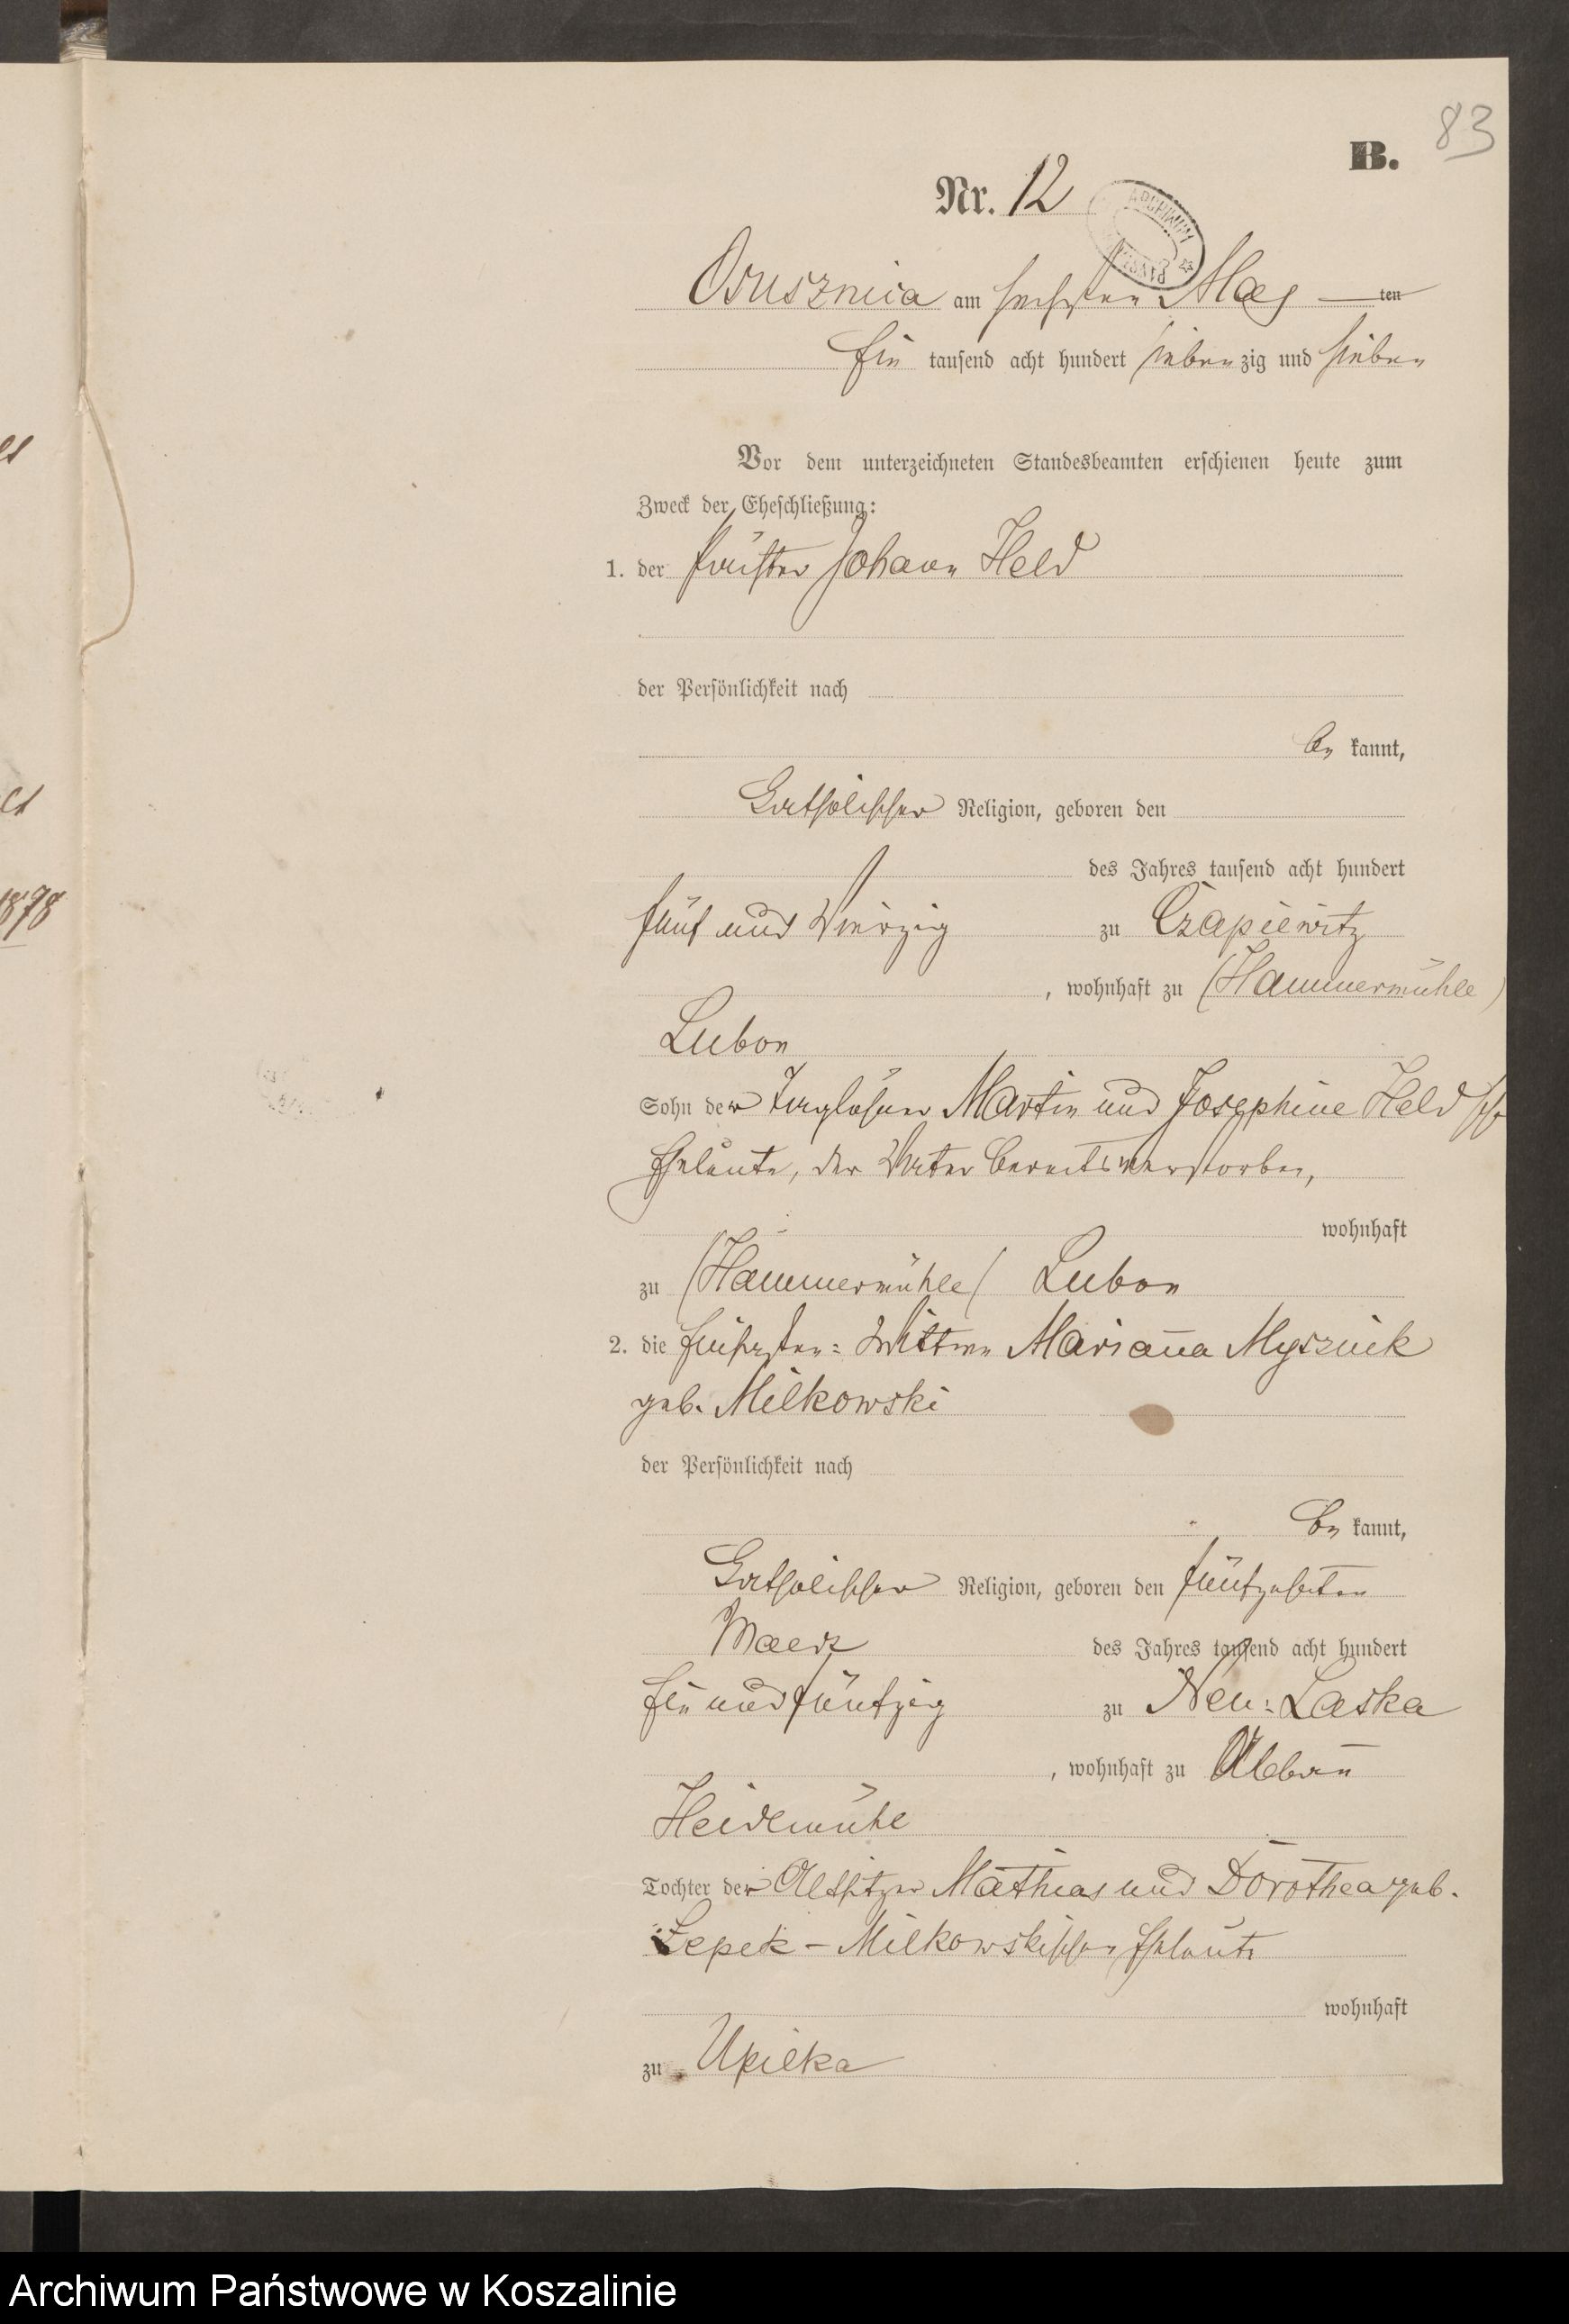 83
B.
Nr. 12
ARCHIWUM
Osusznica am sechsten May ten
Ein tausend acht hundert sieben zig und sieben
Vor dem unterzeichneten Standesbeamten erschienen heute zum
Zweck der Eheschließung:
1. der Johann Held
der Persönlichkeit nach
be kannt,
Catholischer Religion, geboren den
des Jahres tausend acht hundert
fünf und Vierzig zu Czapiewitz
, wohnhaft zu (Hammermühle)
Lubon
Sohn der Martin und Josephine Held
Eheleute, der Vater bereits verstorben,
wohnhaft
zu (Hammermühle) Lubon
2. die Wittwe Mariana Mysznick
geb. Milkowski
der Persönlichkeit nach
be kannt,
Catholischer Religion, geboren den fünfzehnten
Maerz des Jahres tausend acht hundert
Ein und fünfzig zu Neu-Laska
, wohnhaft zu
Heidemühe
Tochter der Altsitzer Mathias und Dorothea geb.
Lepek - Milkowskischen Eheleute
wohnhaft
zu Upilka
1878
Archiwum Państwowe w Koszalinie